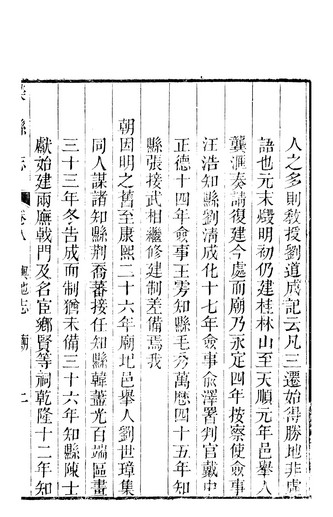 人之多則敎授劉道成記云凡三遷始得勝地非虛
語也元末燬明初仍建桂林山至天順元年邑舉人
龔滙奏請復建今處而廟乃永定四年按察使僉事
汪浩知縣劉淸成化十七年僉事俞澤署判官戴中
正德十四年僉事王芳知縣毛秀萬歷四十五年知
縣張接武相繼修建制差備焉我
朝因明之舊至康熙二十六年廟圮邑舉人劉世璋集
同人謀諸知縣荆喬蕃接任知縣韓藎光百端區畫
三十三年冬告成而制猶未備三十六年知縣陳士
獻始建兩廡戟門及名宦鄉賢等祠乾隆十二年知
縣志
卷八
輿地志
廟
上